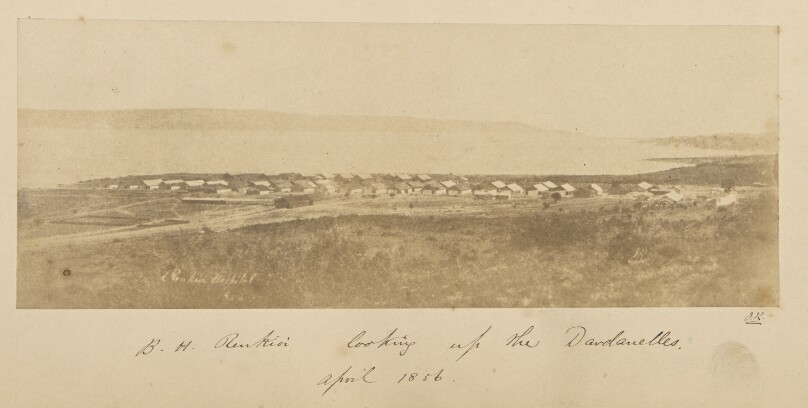 Renkioi Hospital
J.K.
B. H. Renkioi looking up the Dardanelles.
April 1856.